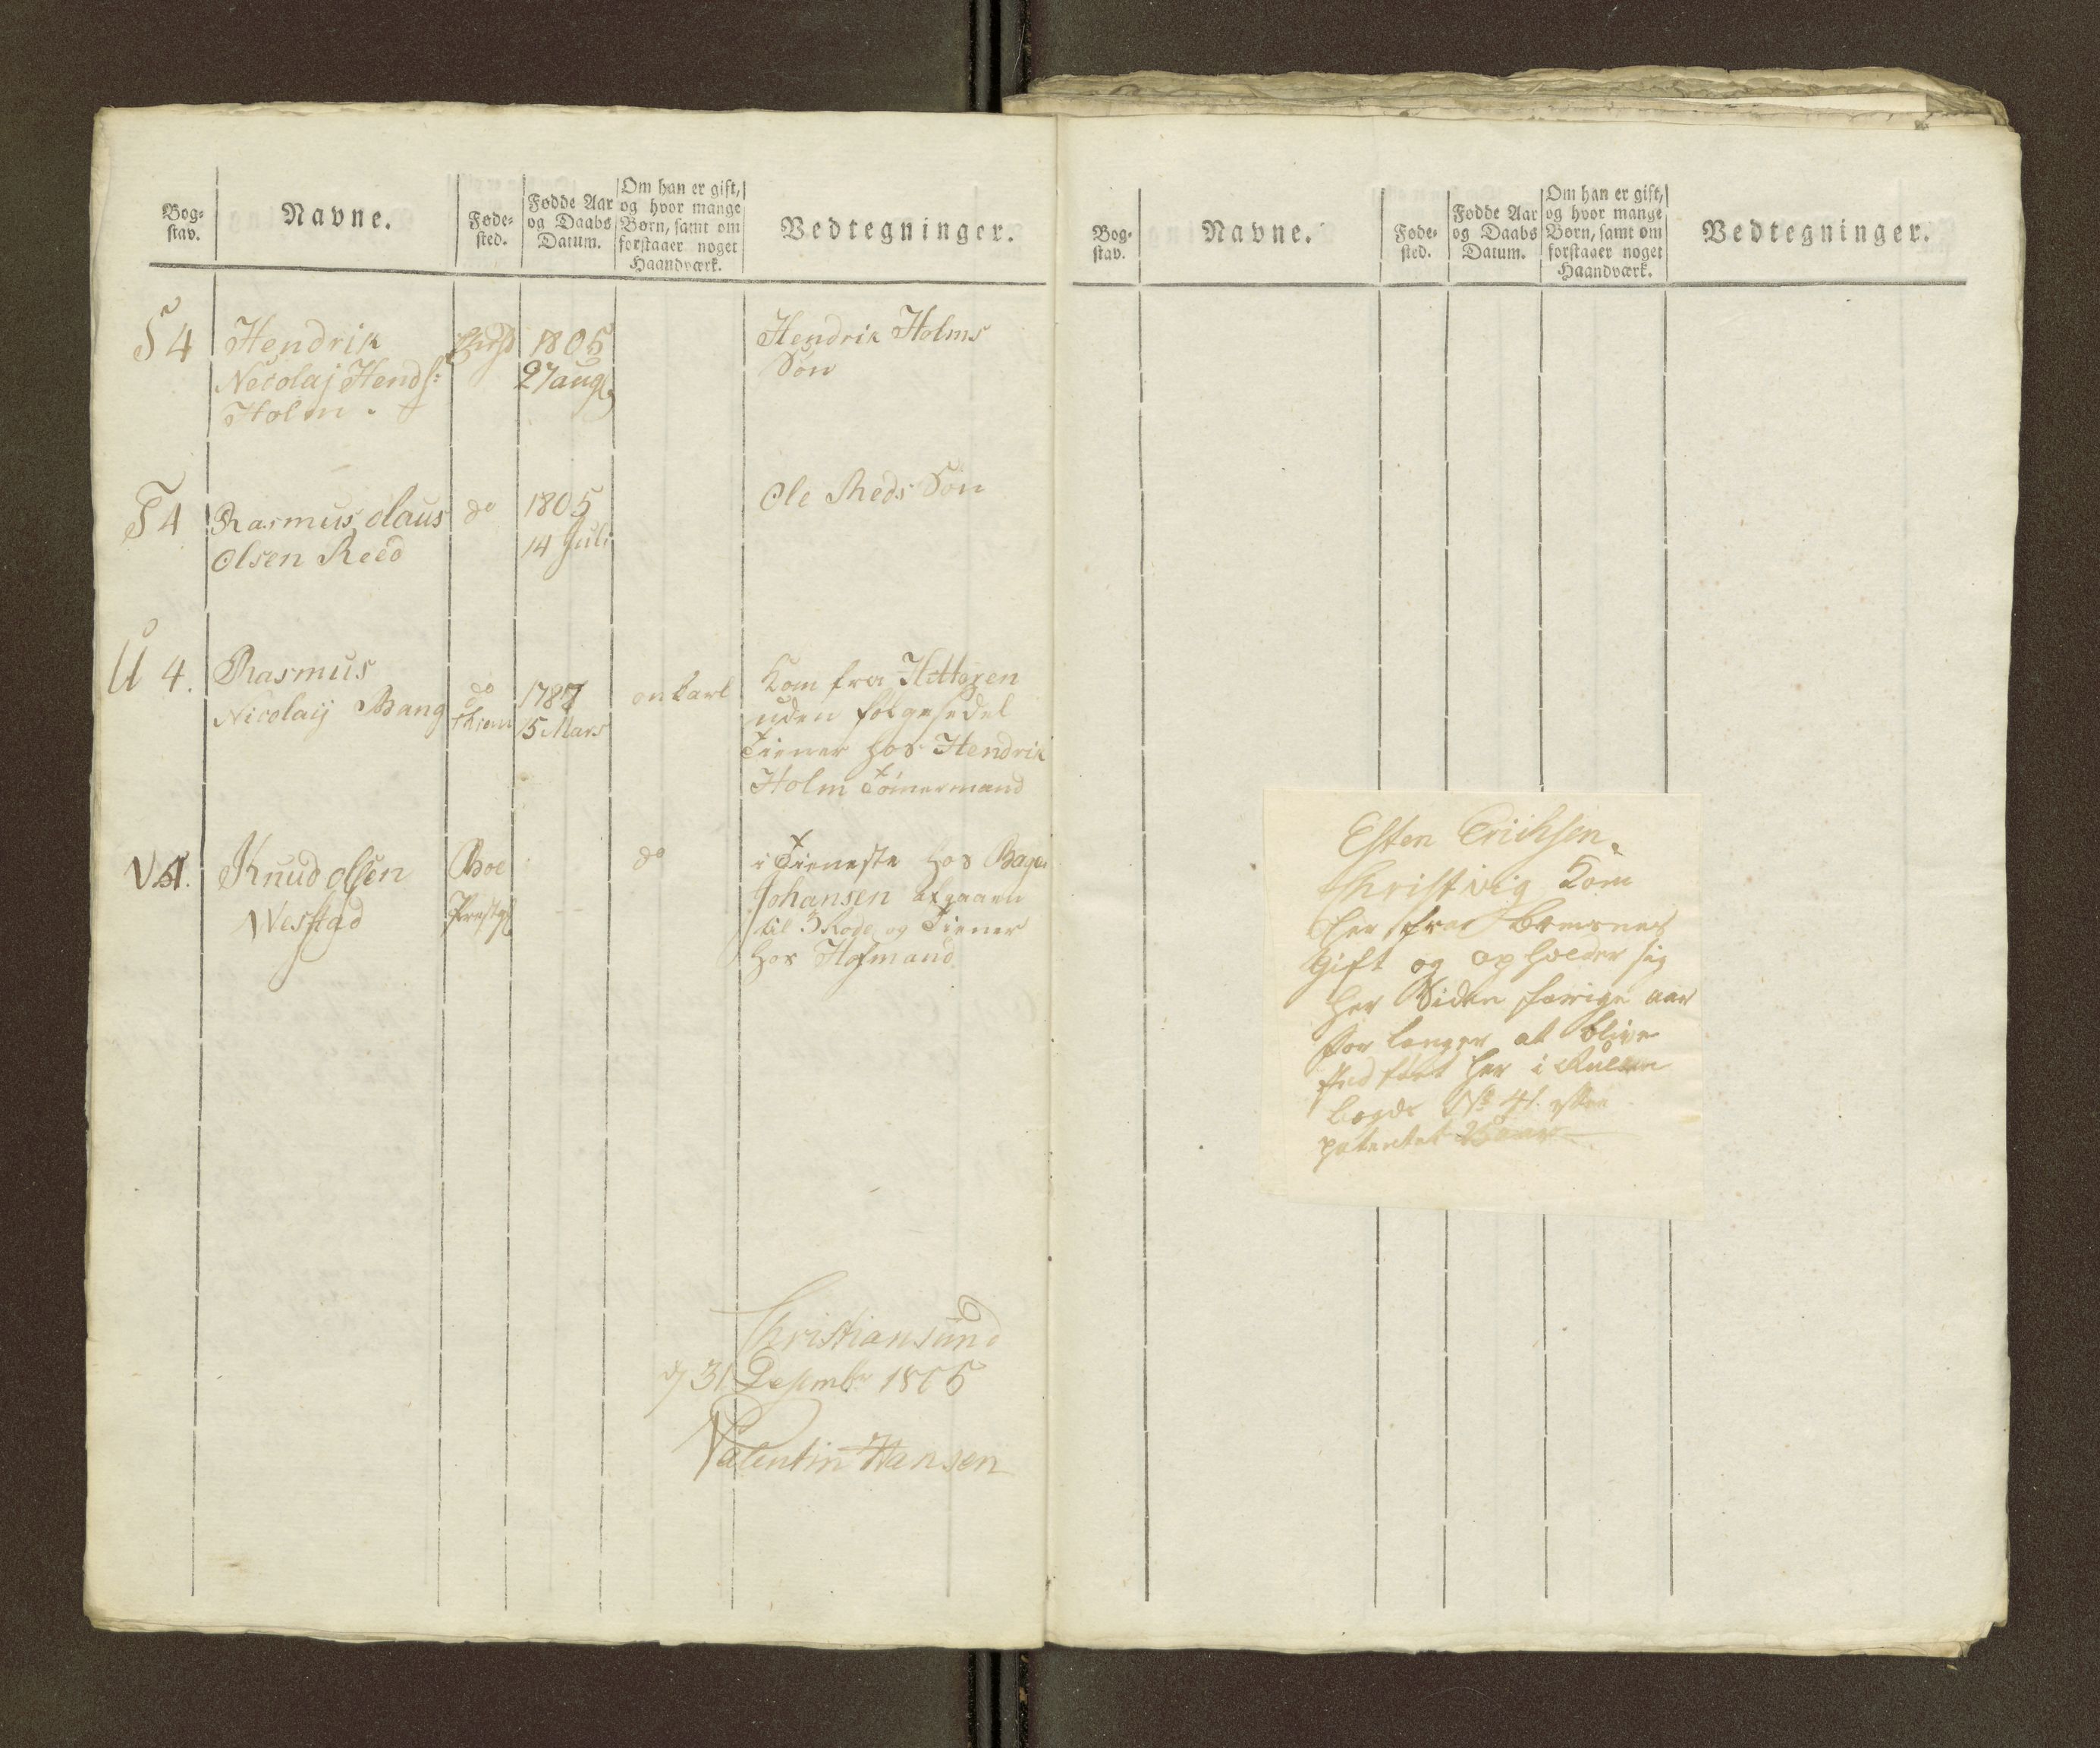 Bog-
stav.
Navne.
Føde-
sted.
Fødde Aar
og Daabs
Datum.
Om han er gift,
og hvor mange
Børn, samt om
forstaaer noget
Haandværk.
Vedtegninger.
S 4
Hendrik
Necolaj Hends:
Holm.
1805
27 aug
Hendrik Holms
Søn
T 4
Rasmus olaus
Olsen Reed
do
1805
14 Juli
Ole Reds Søn
U 4.
Rasmus
Nicolaij Bang
do
1787
15 Mars
onkarl
Kom fra Hitteren
uden følgesedel
Tiener hos Hendrik
Holm Tømermand
V 4.
Knud olsen
Westad
Boe
Prestg
do
i Tieneste hos Bager
Johansen afgaaen
til 3 Rode og Tiener
hos Hofmand
Christiansund
d 31 Desembr 1805
Valentin Hansen
Bog-
stav.
Navne.
Føde-
sted.
Fødde Aar
og Daabs
Datum.
Om han er gift,
og hvor mange
Børn, samt om
forstaaer noget
Haandværk.
Vedtegninger.
Esten Erichsen.
Christvig Kom
her fra bremsnes
Gift og opholder sig
her Siden forrige aar
for lenger at blive
ført her i Rullen
No 4
patentet